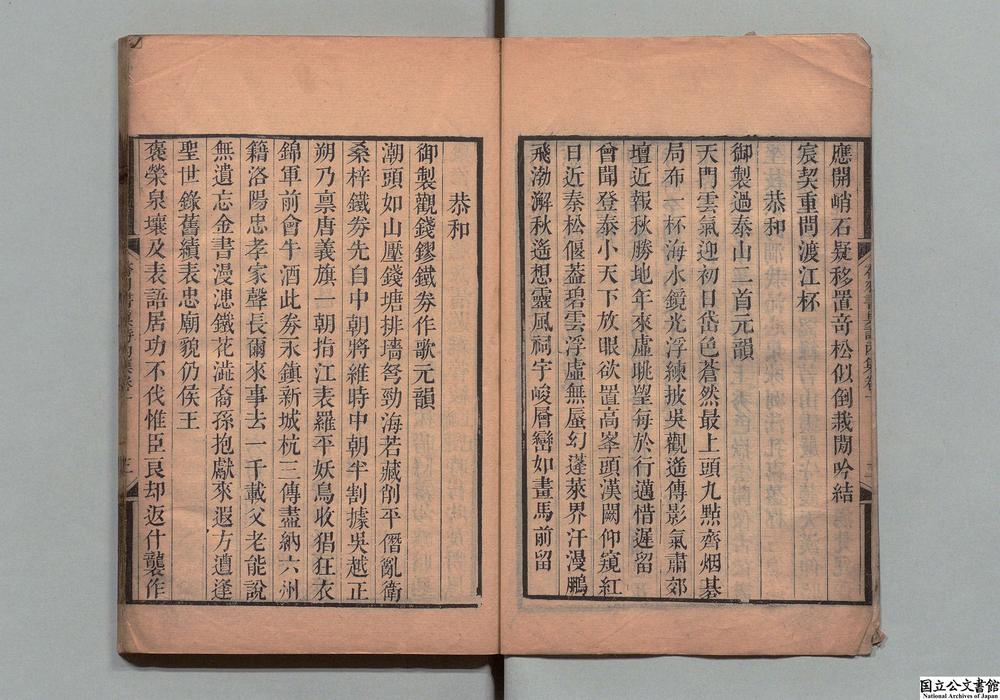 應開峭石疑移置竒松似倒栽閒吟結
宸契重問渡江杯
恭和
御製過泰山二首元韻
天門雲氣迎初日岱色蒼然最上頭九㸃齊烟棊
局布一杯海水鏡光浮練披吳觀遙傳影氣肅郊
壇近報秋勝地年來虛眺望每於行邁惜遲留
曾聞登泰小天下放眼欲置高峯頭漢闕仰窺紅
日近秦松偃蓋碧雲浮虛無蜃幻蓬萊界汗漫鵬
飛渤澥秋遙想靈風祠宇峻層巒如畫馬前留
恭和
御製觀錢鏐鐵劵作歌元韻
潮頭如山壓錢塘排墻弩勁海若藏削平僭亂衛
桑梓鐵劵先自中朝將維時中朝半割據吳越正
朔乃禀唐義旗一朝指江表羅平妖鳥收猖狂衣
錦軍前會牛酒此劵永鎮新城杭三傳盡納六州
籍洛陽忠孝家聲長爾來事去一千載父老能說
無遺忘金書漫漶鐵花澁裔孫抱獻來遐方遭逢
聖世錄舊績表忠廟貌仍侯王
褒榮泉壤及表語居功不伐惟臣良却返什襲作
國立公文書館
National Archives of Japan